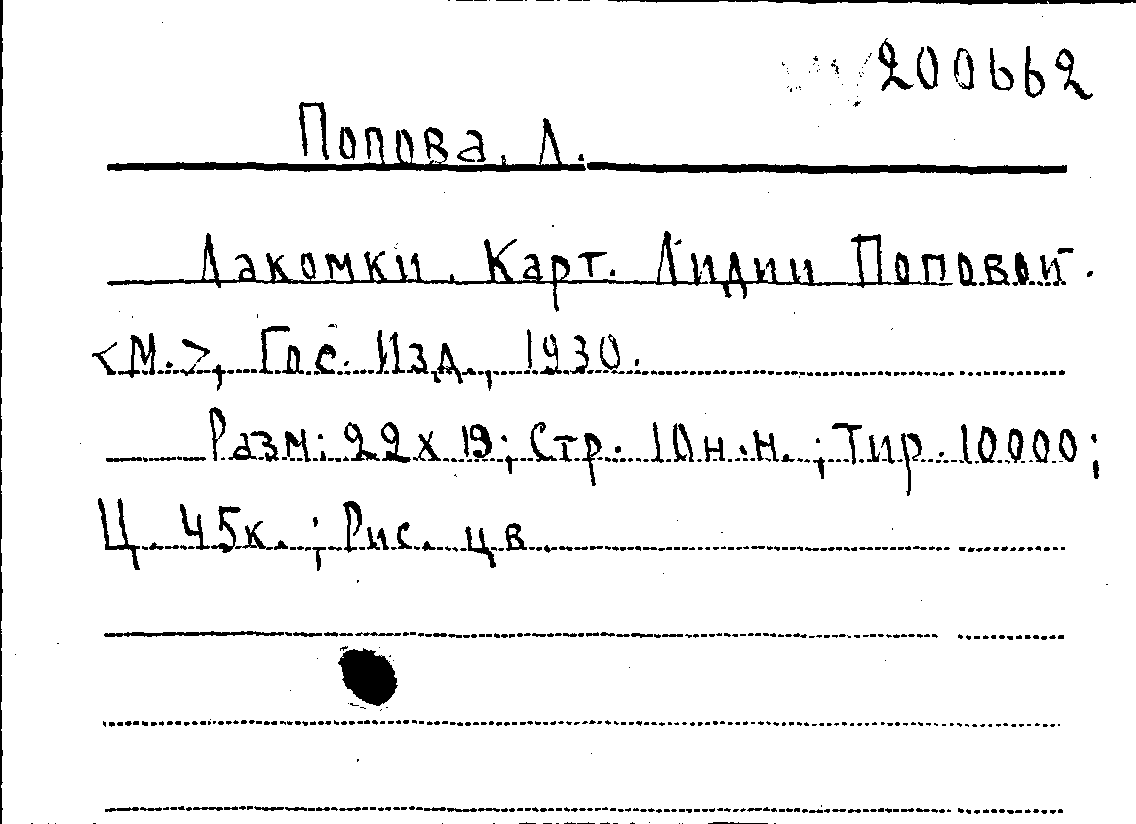 200662
Попова, Л.
Лакомки. Карт. Лидии Поповой.
<М.>, Гос. Изд., 1930.
Разм: 22х19; Стр. 10н.н.; Тир. 10000;
Ц. 45к.; Рис. цв.